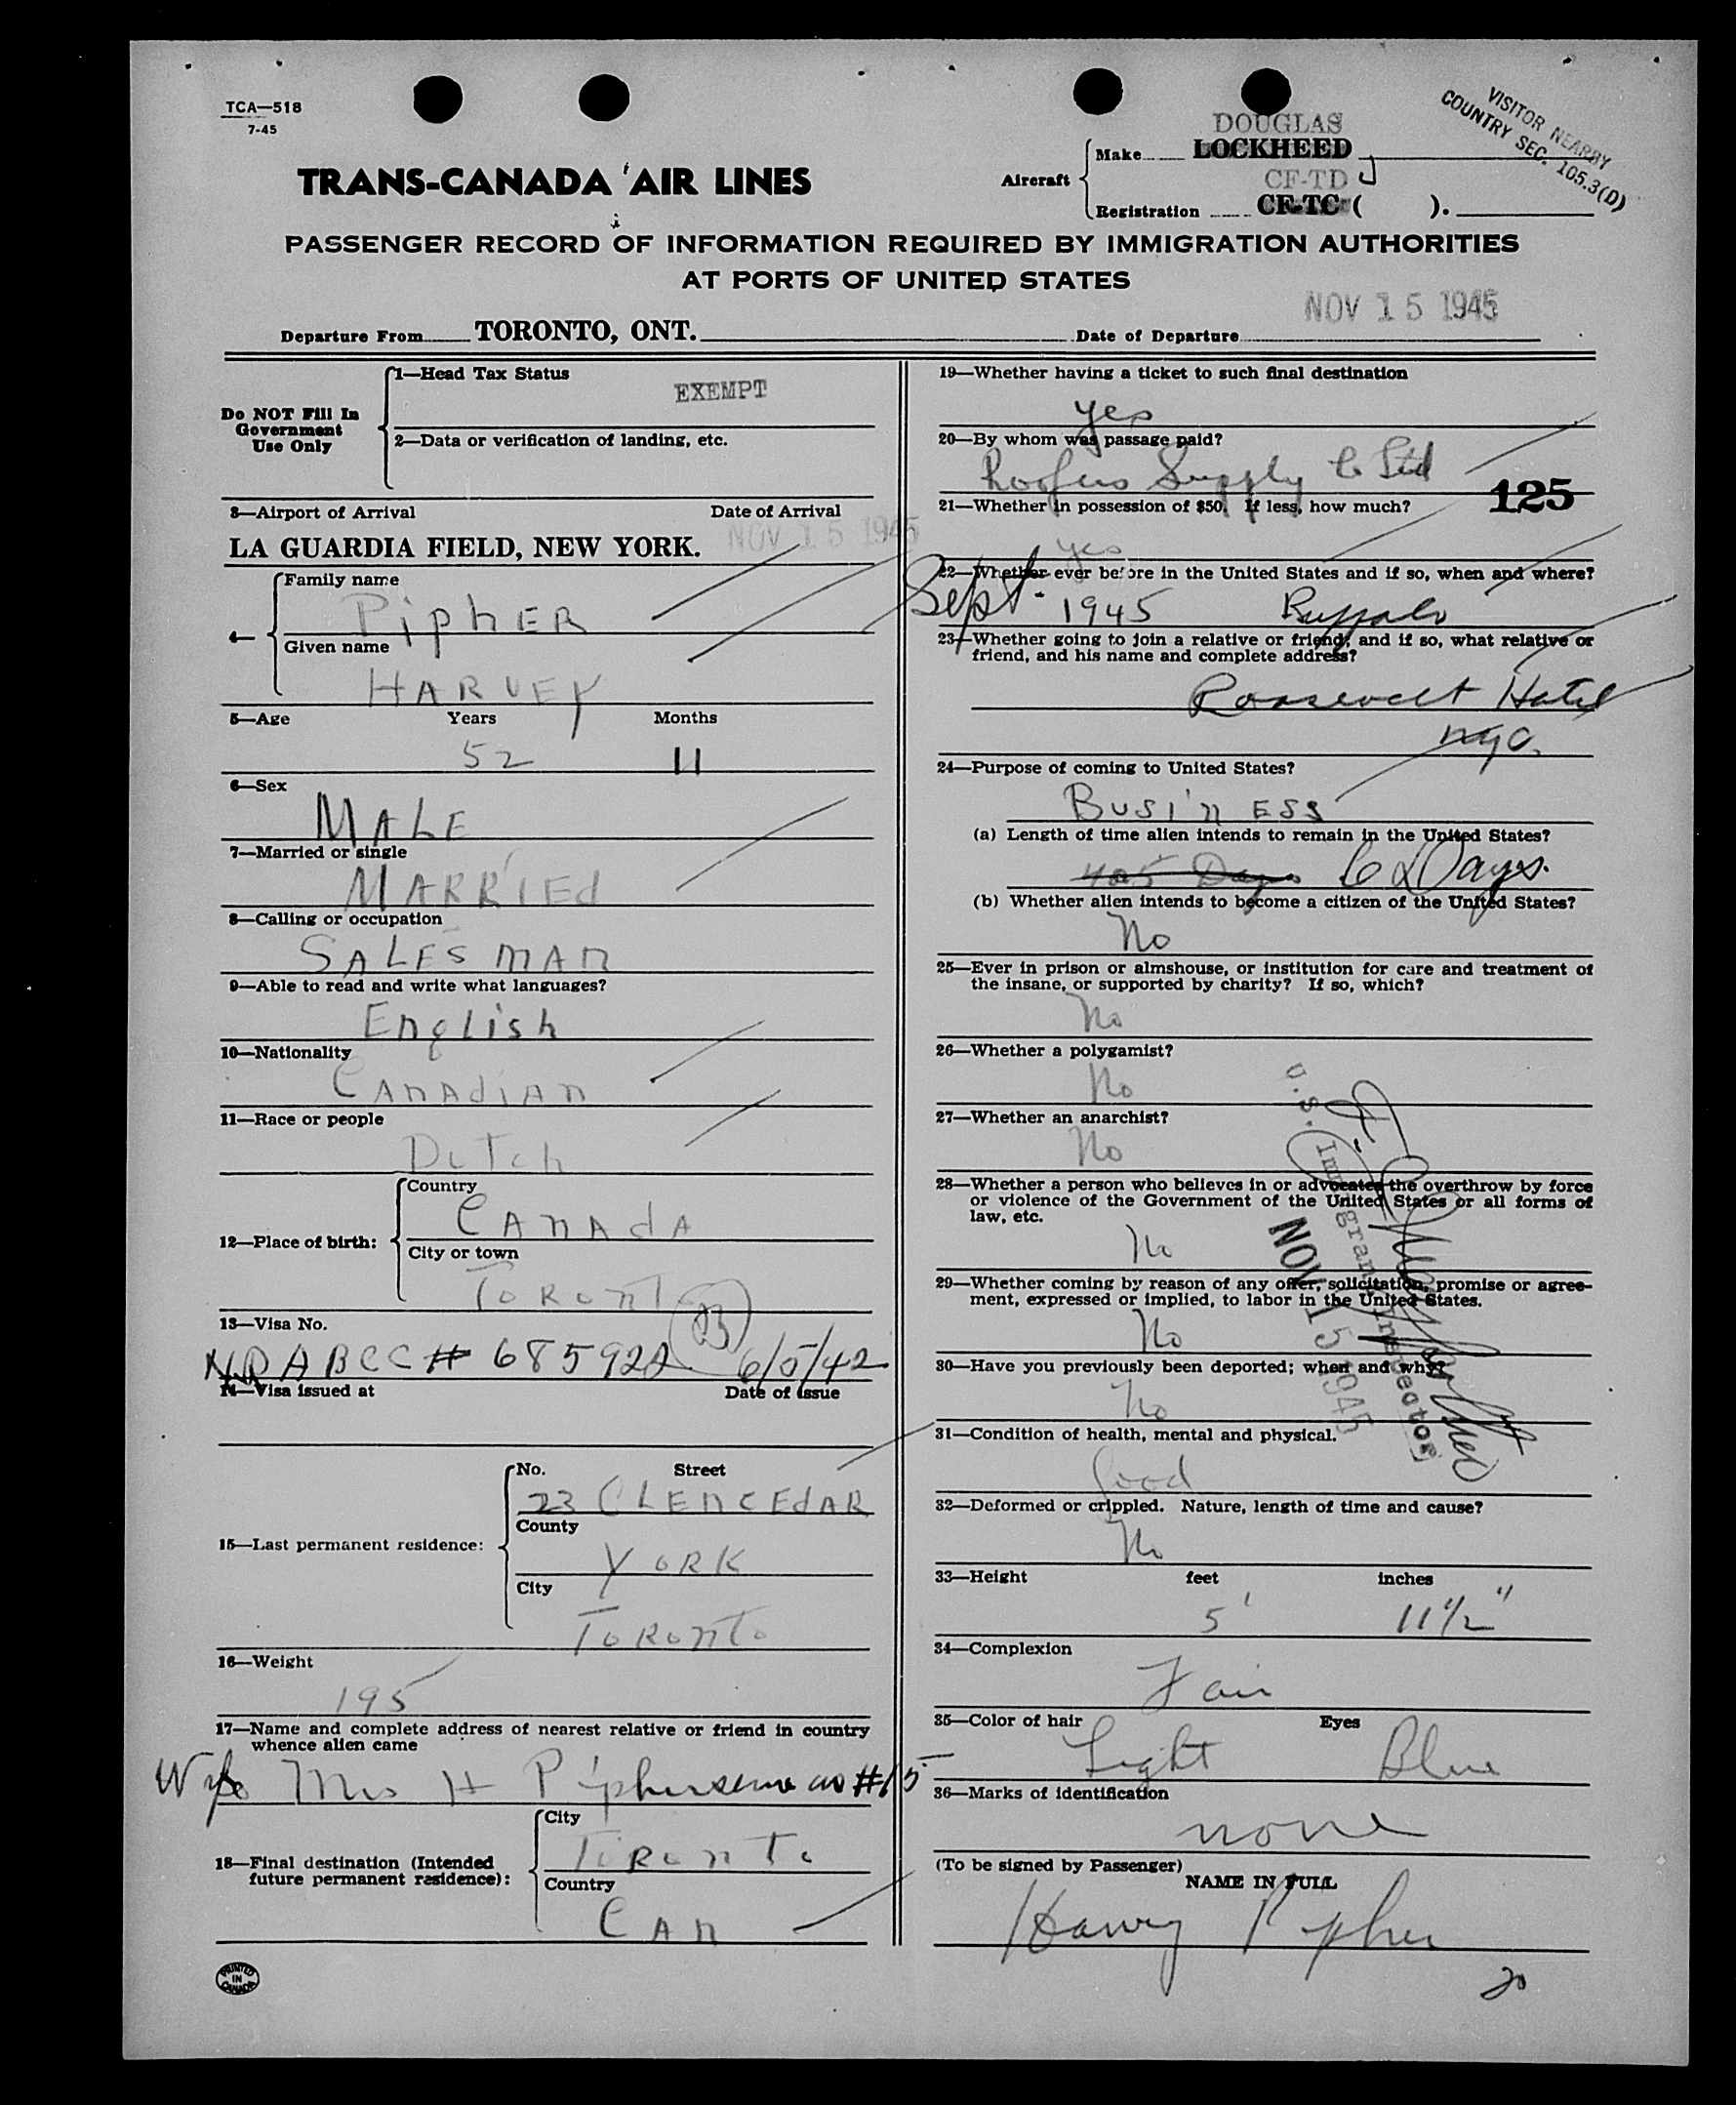 TCA—518
7-45
VISITOR NEARBY
COUNTRY SEC. 105.3(D)
TRANS-CANADA AIR LINES
Aircraft
DOUGLAS
Make LOCKHEED
CF-TD J
Registration CF-TC ( ).
PASSENGER RECORD OF INFORMATION REQUIRED BY IMMIGRATION AUTHORITIES
AT PORTS OF UNITED STATES
NOV 15 1945
Departure From TORONTO, ONT. Date of Departure
Do NOT Fill In
Government
Use Only
1—Head Tax Status
EXEMPT
2—Data or verification of landing, etc.
3—Airport of Arrival Date of Arrival
LA GUARDIA FIELD, NEW YORK. NOV 15 1945
4—
Family name
PiphER
Given name
HARVEY
5—Age Years Months
52 11
6—Sex
MALE
7—Married or single
MARRIEd
8—Calling or occupation
SALESMAN
9—Able to read and write what languages?
English
10—Nationality
CANAdiAN
11—Race or people
DuTch
12—Place of birth:
Country
CANAdA
City or town
ToRonT
13—Visa No.
NRABCC# 685922 6/5/42
14—Visa issued at Date of issue
15—Last permanent residence:
No. Street
23 GLENCEdAR
County
YORK
City
ToRonTo
16—Weight
195
17—Name and complete address of nearest relative or friend in country
whence alien came
Wife Mrs H Pipher same as #15
18—Final destination (Intended
future permanent residence):
City
ToRonTo
Country
CAn
PRINTED
IN
CANADA
19—Whether having a ticket to such final destination
yes
20—By whom was passage paid?
Roofers Supply Co Ltd
125
21—Whether in possession of $50. If less, how much?
yes
22—Whether ever before in the United States and if so, when and where?
Sept. 1945 Buffalo
23—Whether going to join a relative or friend; and if so, what relative or
friend, and his name and complete address?
Roosevelt Hotel
nyc.
24—Purpose of coming to United States?
BusinESS
(a) Length of time alien intends to remain in the United States?
4 or 5 Days 6 Days.
(b) Whether alien intends to become a citizen of the United States?
No
25—Ever in prison or almshouse, or institution for care and treatment of
the insane, or supported by charity? If so, which?
No
26—Whether a polygamist?
No
27—Whether an anarchist?
No
28—Whether a person who believes in or advocates the overthrow by force
or violence of the Government of the United States or all forms of
law, etc.
No
29—Whether coming by reason of any offer, solicitation, promise or agree-
ment, expressed or implied, to labor in the United States.
No
30—Have you previously been deported; when and why?
No
U.S. Immigrant Inspector
NOV 15 1945
31—Condition of health, mental and physical.
Good
32—Deformed or crippled. Nature, length of time and cause?
No
33—Height feet inches
5' 11½"
34—Complexion
Fair
35—Color of hair Eyes
Light Blue
36—Marks of identification
none
(To be signed by Passenger)
NAME IN FULL
Harvey Pipher
20